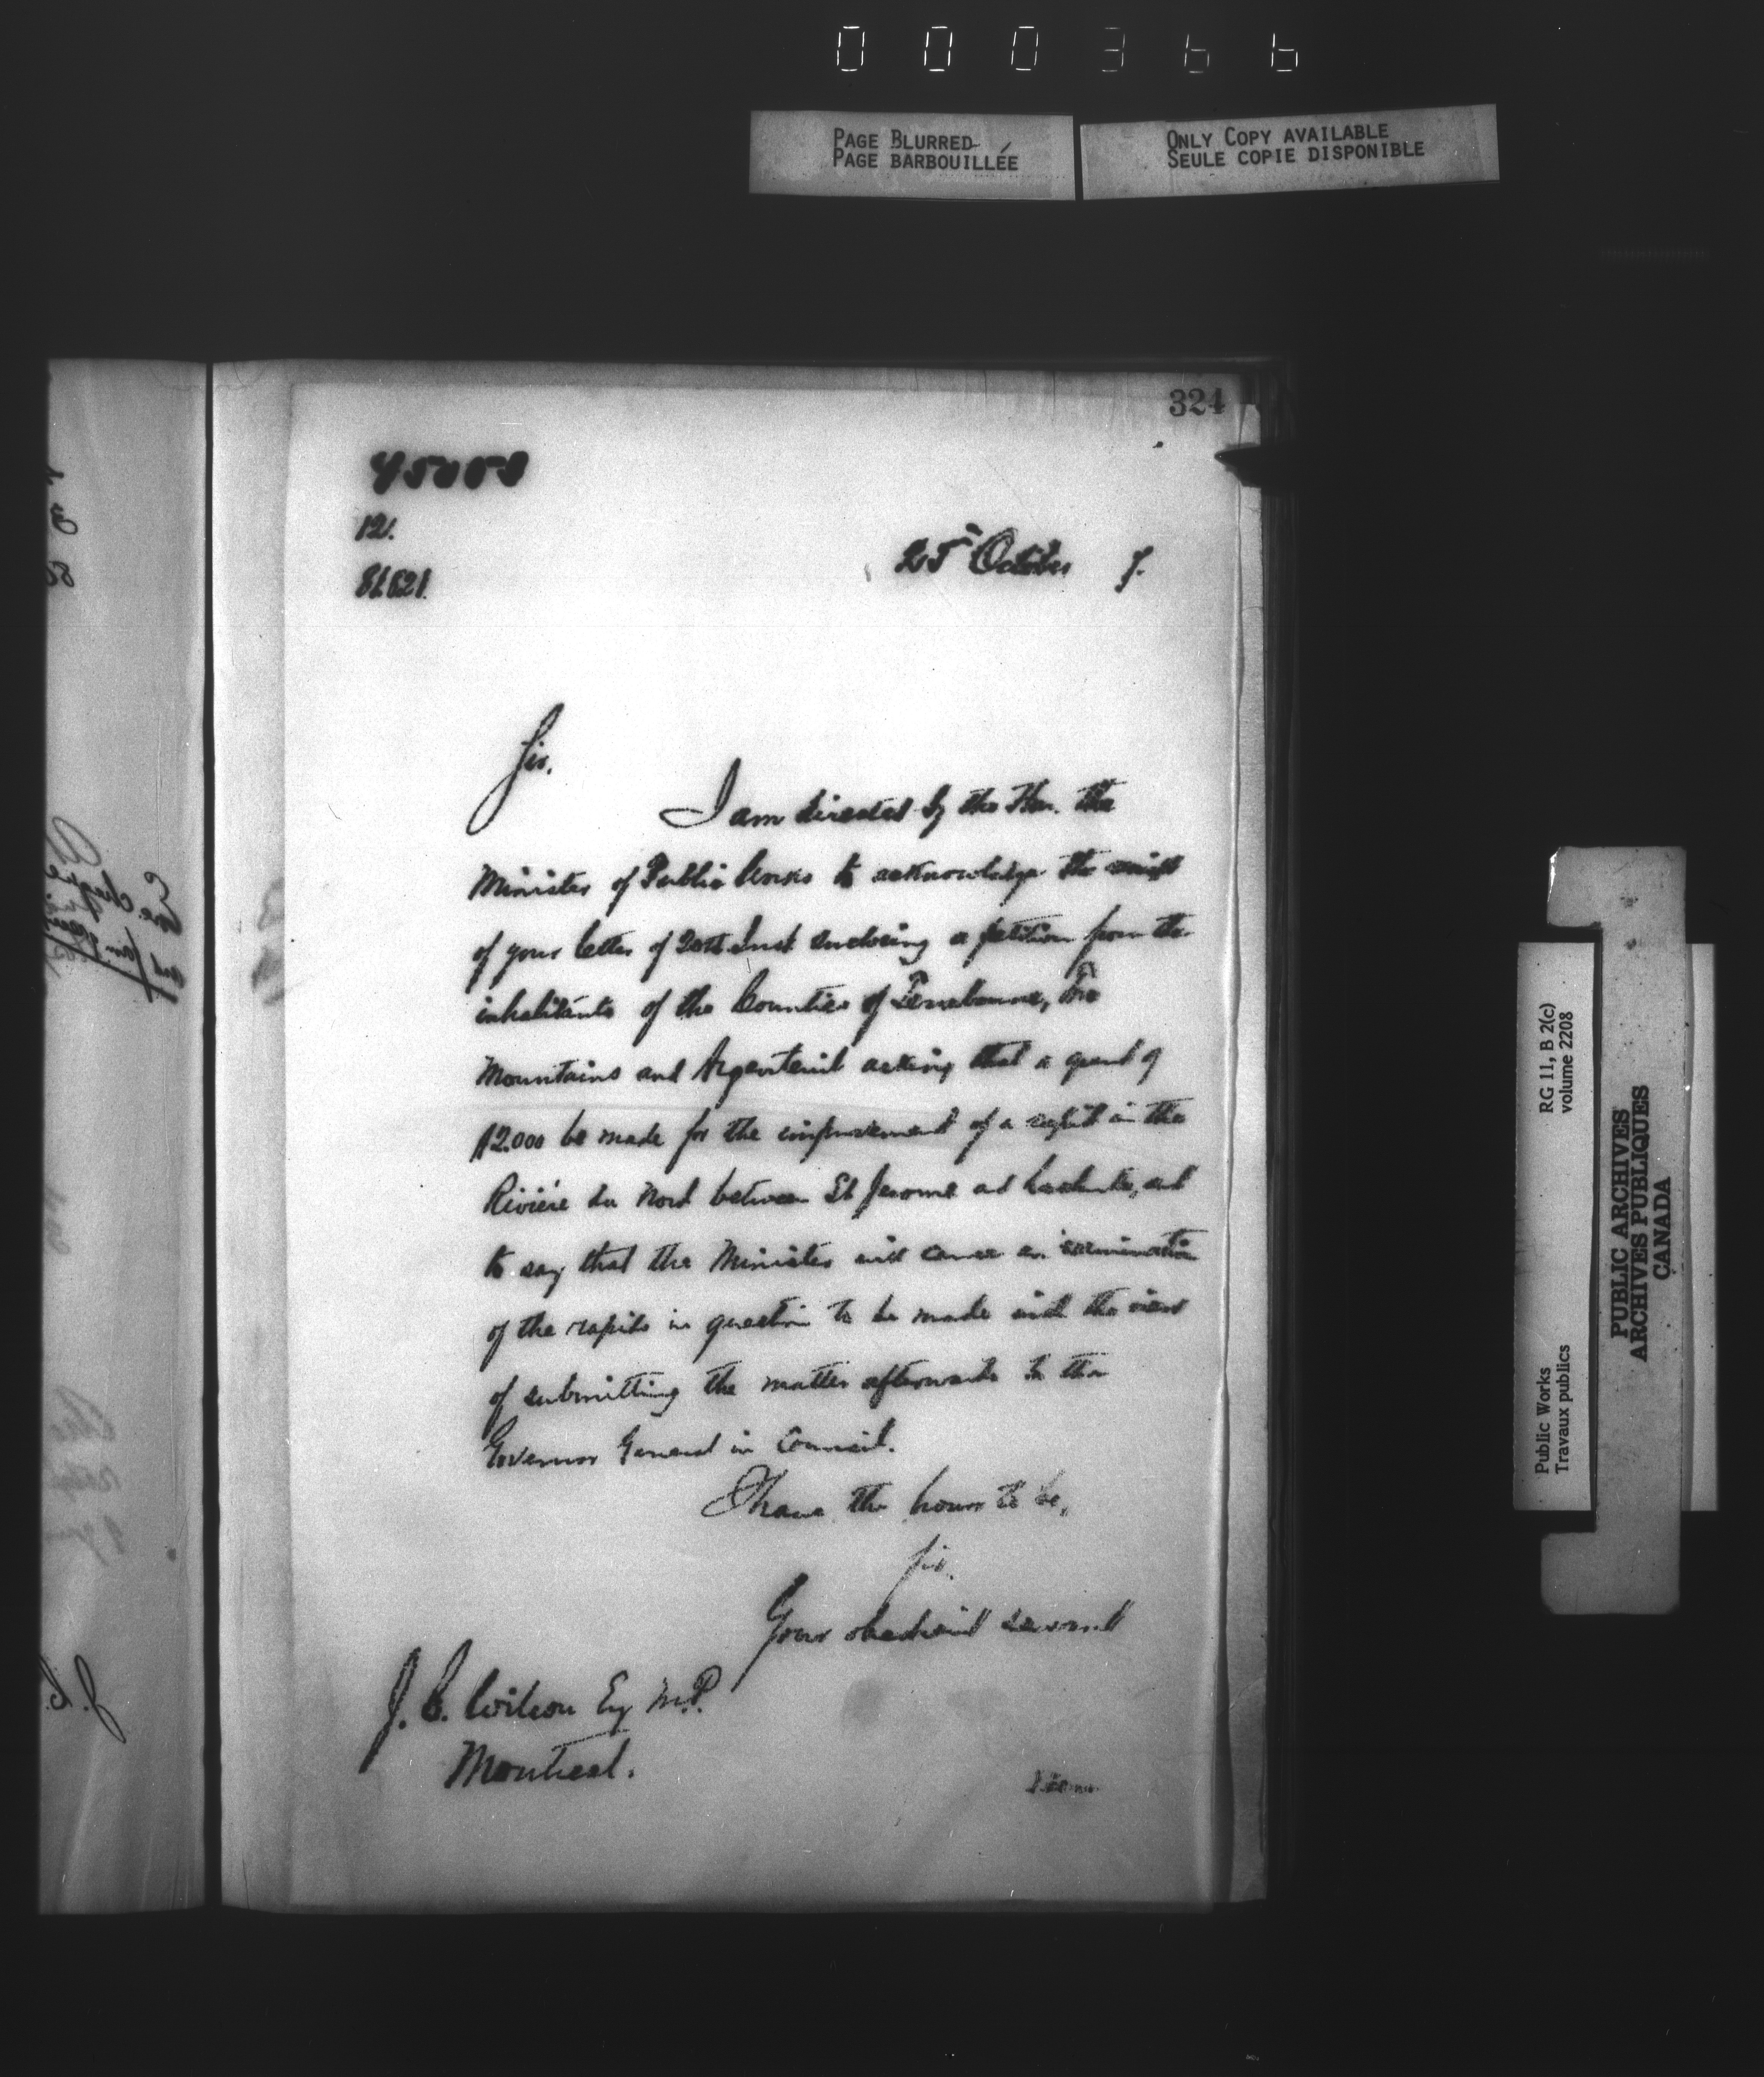 000366
PAGE BLURRED
PAGE BARBOUILLÉE
ONLY COPY AVAILABLE
SEULE COPIE DISPONIBLE
324
121.
81821.
25th October 7.
Sir,
I am directed by the Hon. the
Minister of Public Works to acknowledge the receipt
of your letter of 20th Inst enclosing a petition from the
inhabitants of the Counties of Terrebonne, Two
Mountains and Argenteuil asking that a grant of
$2.000 be made for the improvement of a rapid in the
Rivière du Nord between St Jerome and Lachute, and
to say that the Minister will cause an examination
of the rapids in question to be made with the view
of submitting the matter afterwards to the
Governor General in Council.
I have the honor to be,
Sir.
Your obedient servant
J. C. Wilson Esq M.P.
Montreal.
RG 11, B 2(c)
volume 2208
Public Works
Travaux publics
PUBLIC ARCHIVES
ARCHIVES PUBLIQUES
CANADA